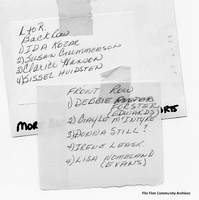 L to R.
Back Row
1) IDA KOZAR
2) SUSAN GULLMERSON
3) CLARICE HANSON
4) SISSEL HVIDSTEN
MOR
ORTS
FRONT ROW
1) DEBBIE
FORSTER
(EDWARDS)
2) GAYLE McINTYRE
3) DONNA STILL?
4) IRENE LEASK
5) LISA NOMELAND
(EVANS)
Flin Flon Community Archives